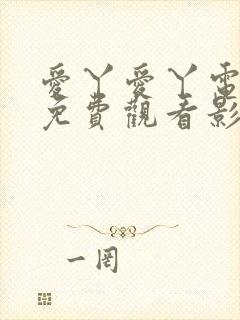 愛丫愛丫電
免費觀看影
一罔